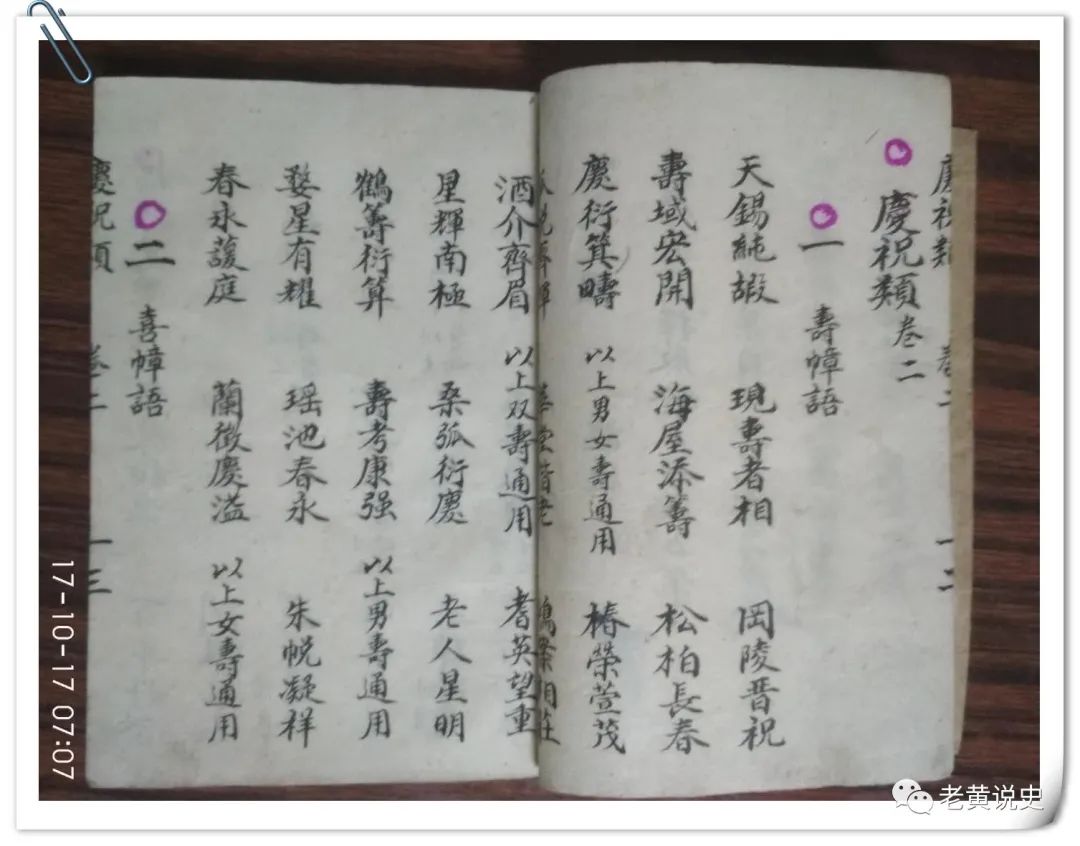 慶祝類 卷二
慶祝類 卷二
一 壽幛語
天錫純嘏 現壽者相 岡陵晋祝
壽域宏開 海屋添籌 松柏長春
慶衍箕疇 以上男女壽通用 椿榮萱茂
酒介齊眉 以上双壽通用 耆英望重
星輝南極 桑弧衍慶 老人星明
鶴籌衍算 壽考康强 以上男壽通用
婺星有耀 瑶池春永 朱帨凝祥
春永蘐庭 蘭徵慶溢 以上女壽通用
二 喜幛語
慶祝類 卷二 一三
17-10-17 07:07
老黄说史